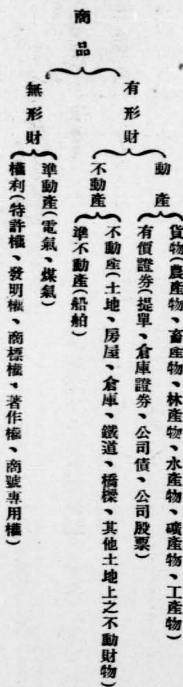 商品
有形財
動產
貨物(農產物、畜產物、林產物、水產物、礦產物、工產物)
有價證券(提單、倉庫證券、公司債、公司股票)
不動產
不動產(土地、房屋、倉庫、鐵道、橋樑、其他土地上之不動財物)
準不動產(船舶)
無形財
準動產(電氣、煤氣)
權利(特許權、發明權、商標權、著作權、商號專用權)